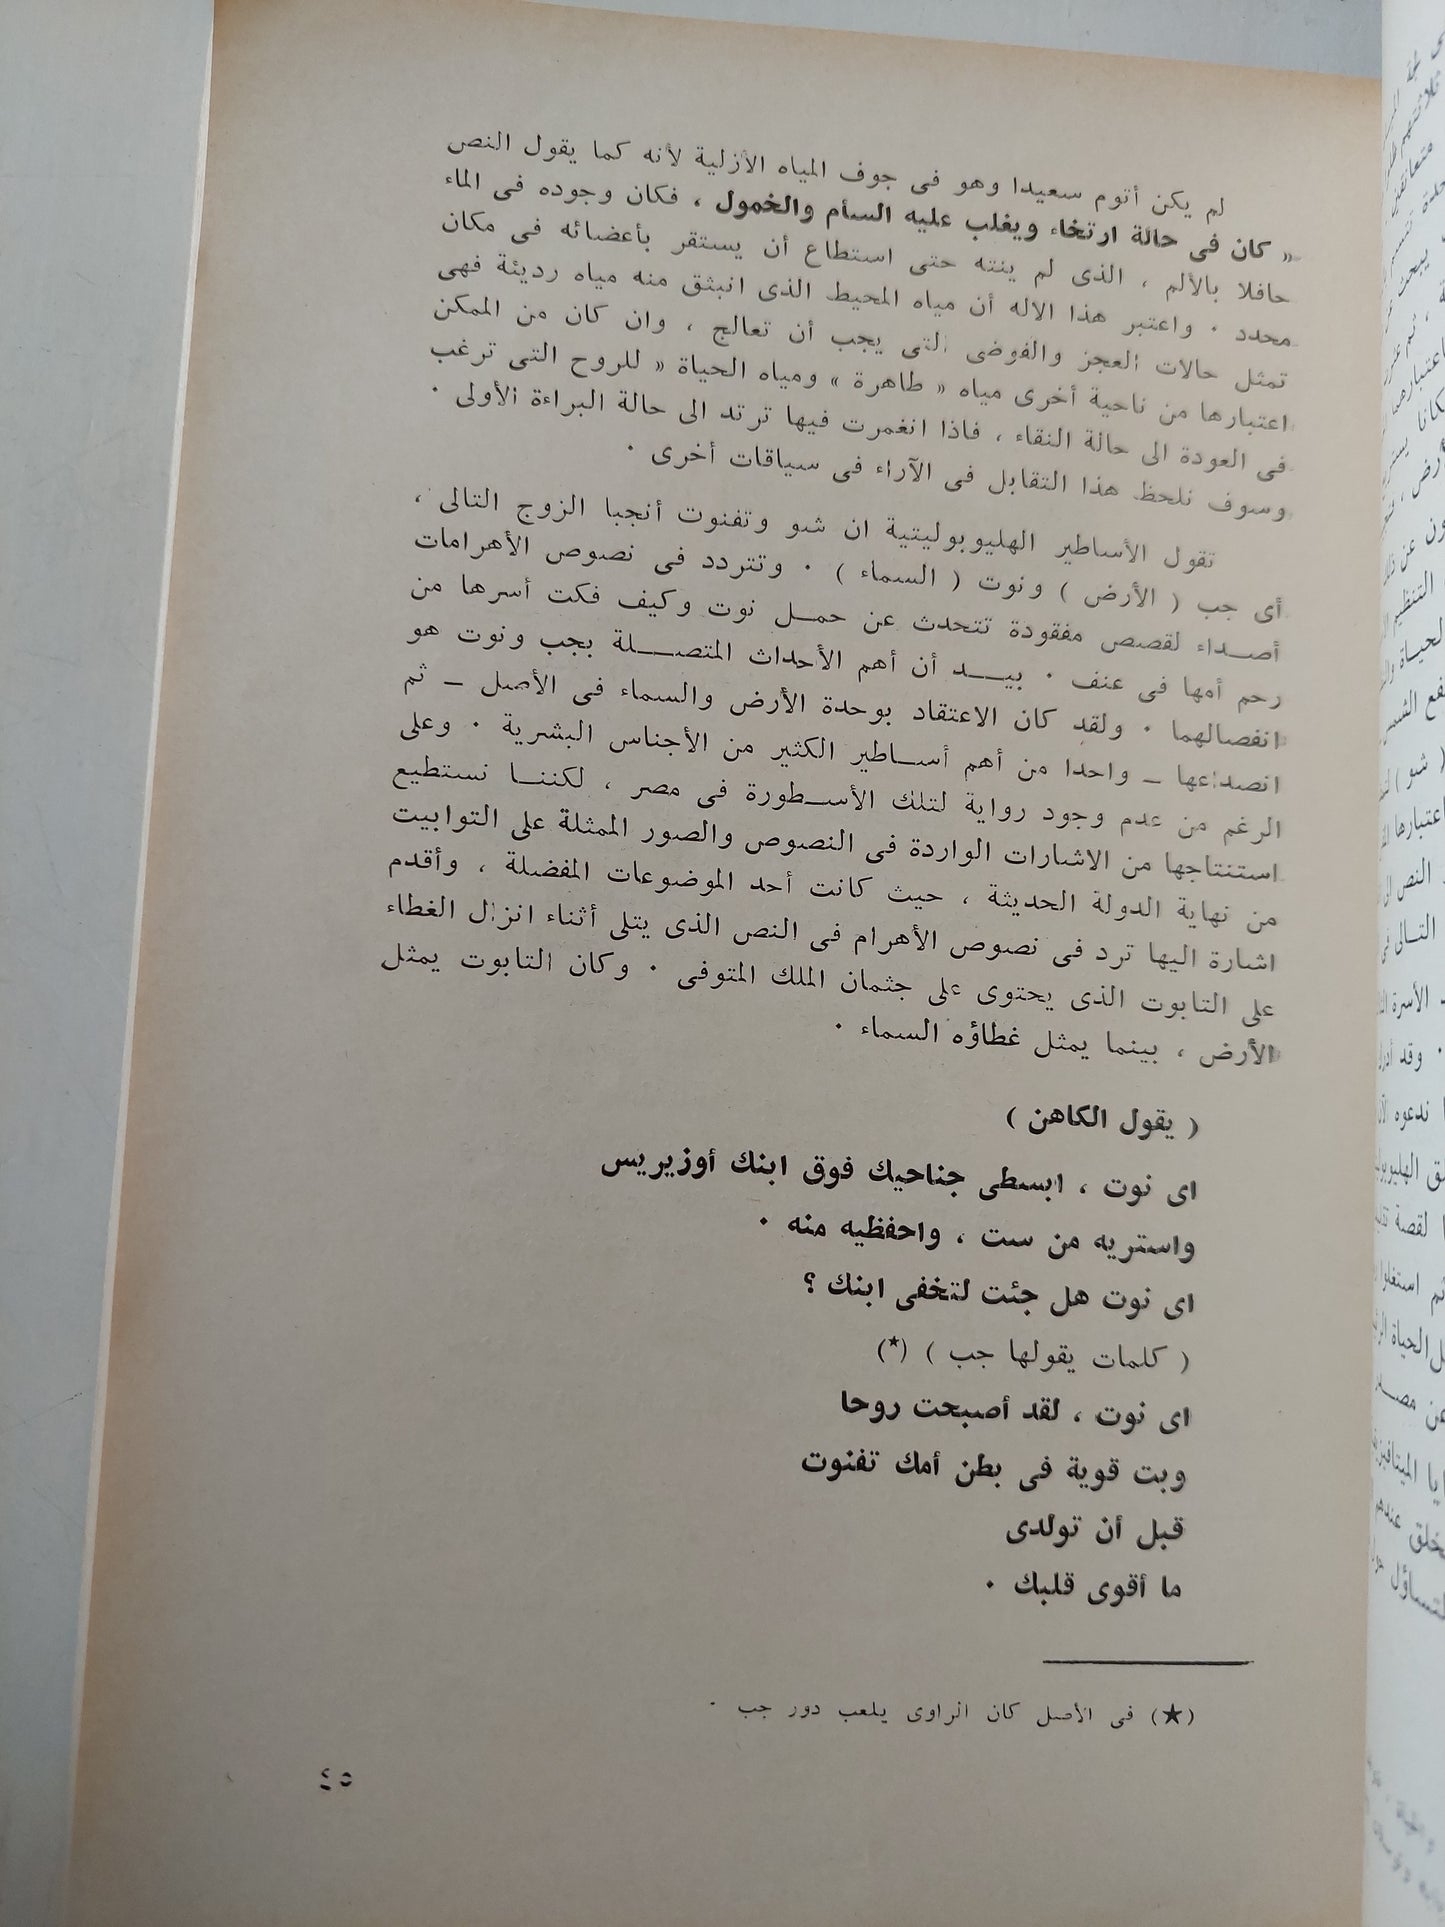 لم يكن أتوم سعيدا وهو فى جوف المياه الأزلية لأنه كما يقول النص
« كان فى حالة ارتخاء ويغلب عليه السأم والخمول ، فكان وجوده فى الماء
حافلا بالألم ، الذى لم ينته حتى استطاع أن يستقر بأعضائه فى مكان
محدد · واعتبر هذا الاله أن مياه المحيط الذى انبثق منه مياه رديئة فهى
تمثل حالات العجز والفوضى التى يجب أن تعالج ، وان كان من الممكن
اعتبارها من ناحية أخرى مياه « طاهرة » ومياه الحياة « للروح التى ترغب
فى العودة الى حالة النقاء ، فاذا انغمرت فيها ترتد الى حالة البراءة الأولى ·
وسوف نلحظ هذا التقابل فى الآراء فى سياقات أخرى ·
تقول الأساطير الهليوبوليتية ان شو وتفنوت أنجبا الزوج التالى ،
أى جب ( الأرض ) ونوت ( السماء ) · وتتردد فى نصوص الأهرامات
أصداء لقصص مفقودة تتحدث عن حمل نوت وكيف فكت أسرها من
رحم أمها فى عنف · بيد أن أهم الأحداث المتصلة بجب ونوت هو
انفصالهما · ولقد كان الاعتقاد بوحدة الأرض والسماء فى الأصل – ثم
انصداعها – واحدا من أهم أساطير الكثير من الأجناس البشرية · وعلى
الرغم من عدم وجود رواية لتلك الأسطورة فى مصر ، لكننا نستطيع
استنتاجها من الاشارات الواردة فى النصوص والصور الممثلة على التوابيت
من نهاية الدولة الحديثة ، حيث كانت أحد الموضوعات المفضلة ، وأقدم
اشارة اليها ترد فى نصوص الأهرام فى النص الذى يتلى أثناء انزال الغطاء
على التابوت الذى يحتوى على جثمان الملك المتوفى · وكان التابوت يمثل
الأرض ، بينما يمثل غطاؤه السماء ·
( يقول الكاهن )
اى نوت ، ابسطى جناحيك فوق ابنك أوزيريس
واستريه من ست ، واحفظيه منه ·
اى نوت هل جئت لتخفى ابنك ؟
( كلمات يقولها جب ) (★)
اى نوت ، لقد أصبحت روحا
وبت قوية فى بطن أمك تفنوت
قبل أن تولدى
ما أقوى قلبك ·
(★) فى الأصل كان الراوى يلعب دور جب ·
٤٥